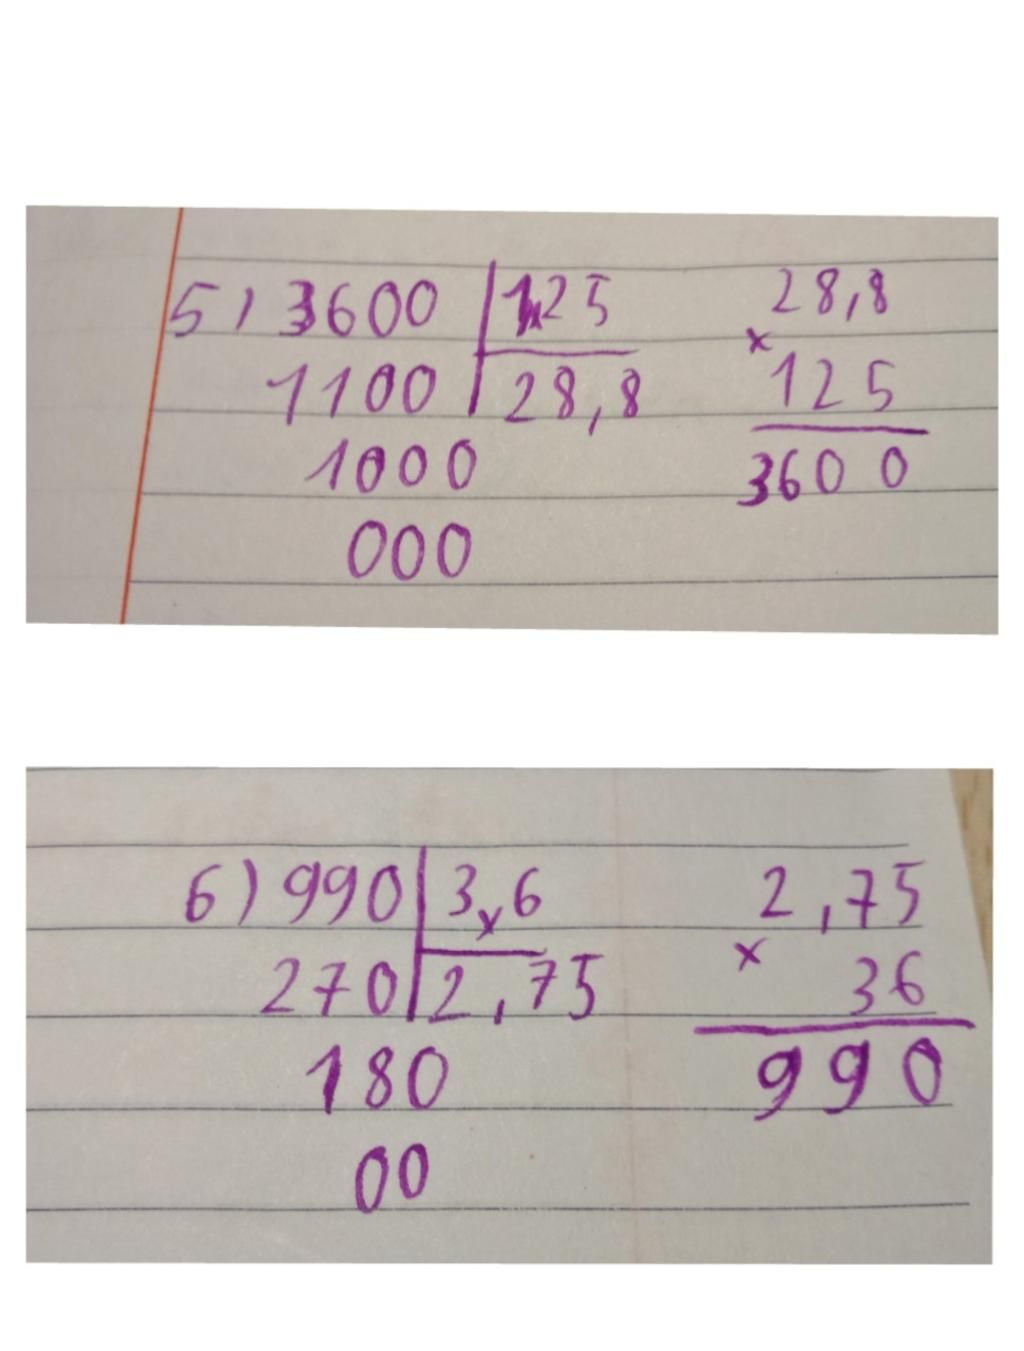 5) 3600 125 28,8
1100 28,8 x 125
1000 3600
000
6) 990 3,6 2,75
270 2,75 x 36
180 990
00